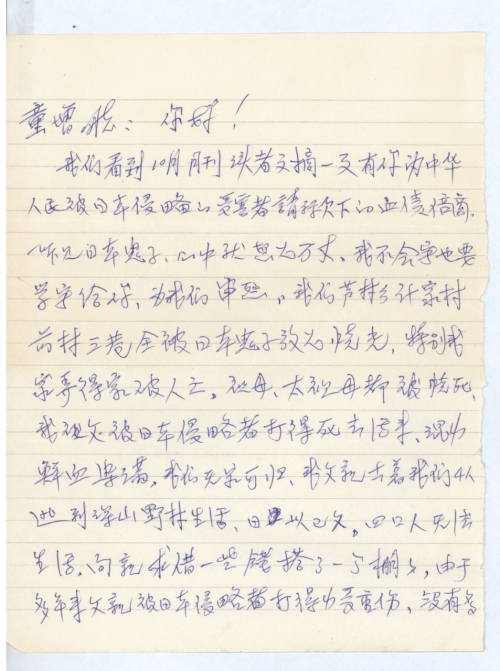 童增能：你好！
我们看到10月月刊读者文摘一文有你为中华
人民被日本侵略的受害者请称欠下的血债倍商.
听见日本鬼子、心中状怒为万丈、我不会字也要
学字给你、为我们审熙。我们芦村乡计家村
前村三巷全被日本鬼子放为烧光，特别我
家弄得家破人亡，祖母、太祖母都被烧死、
我祖父被日本侵略者打得死去活来、混为
鲜血染满，我们无家可归，我父亲去着我们4人
逃到深山野林生活、日以已久，四口人无法
生活、向亲求借一些钱搭了一个棚子，由于
多年来父亲被日本侵略者打得为受重伤，没有多